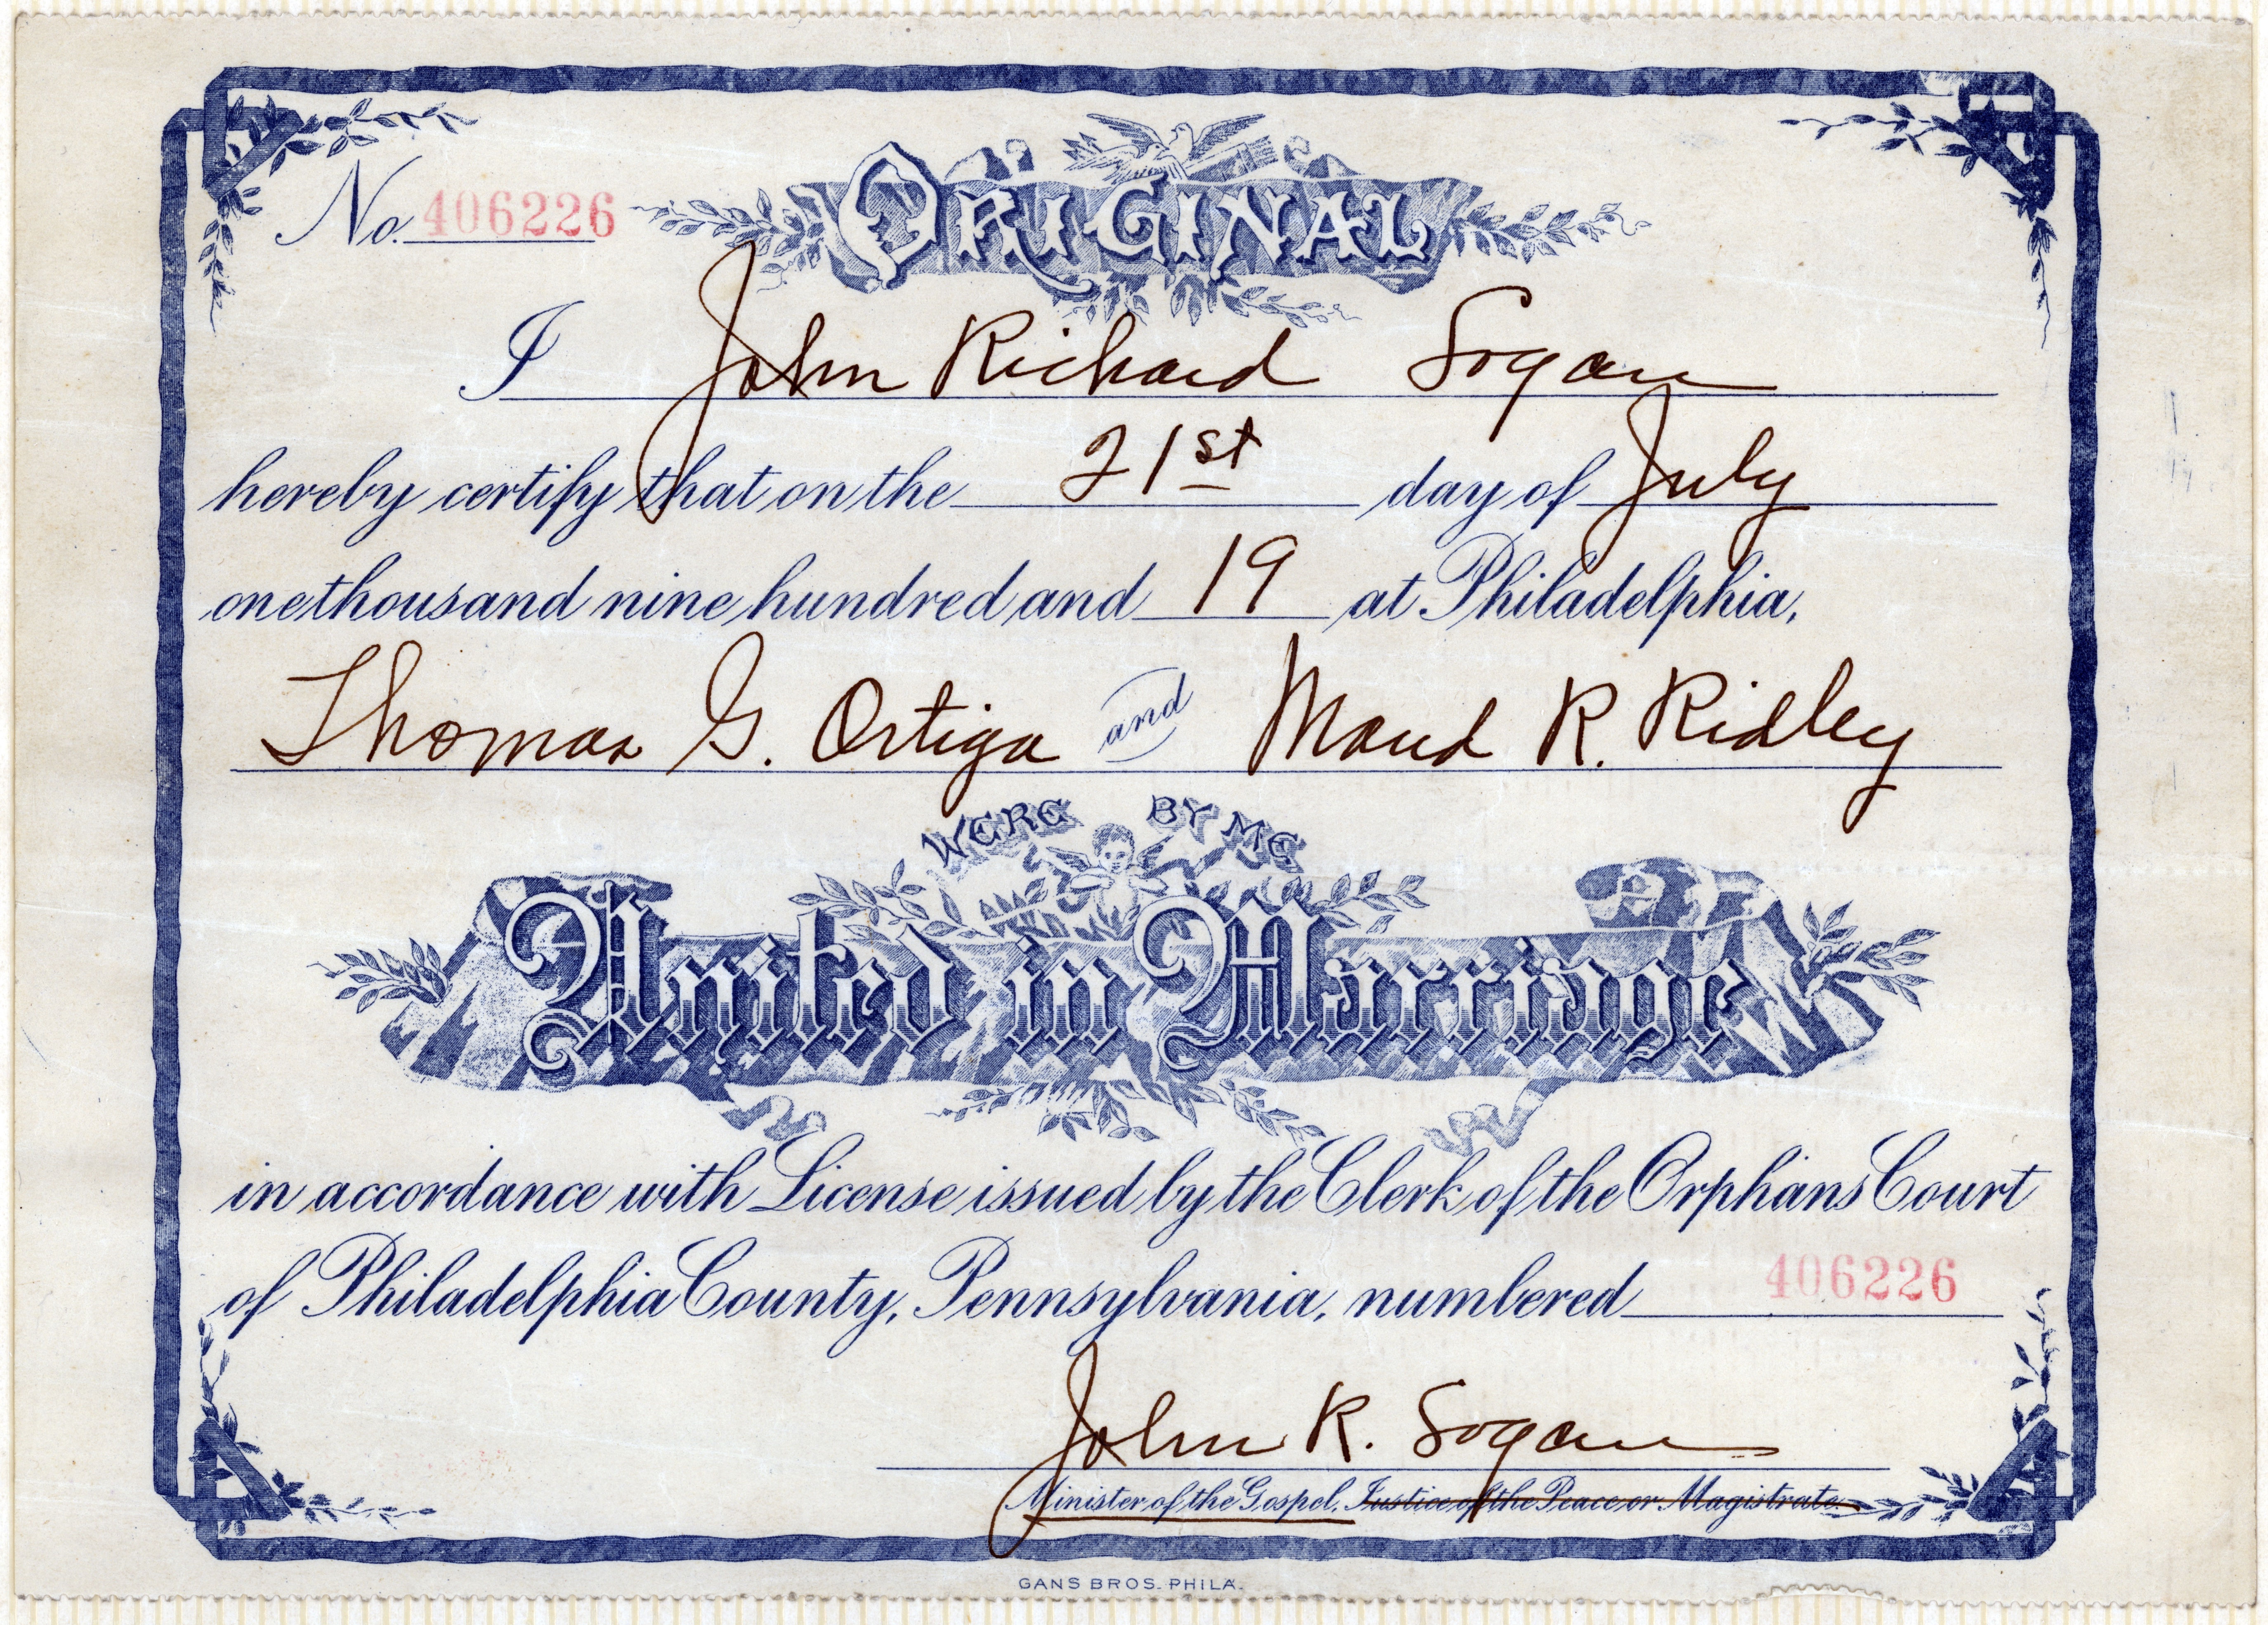 No. 406226
ORIGINAL
I John Richard Sogan
hereby certify that on the 21st day of July
one thousand nine hundred and 19 at Philadelphia,
Thomas G. Ortiga and Maud R. Ridley
WERE BY ME
United in Marriage
in accordance with License issued by the Clerk of the Orphans Court
of Philadelphia County, Pennsylvania, numbered 406226
John R. Sogan
Minister of the Gospel, Justice of the Peace or Magistrate.
GANS BROS. PHILA.